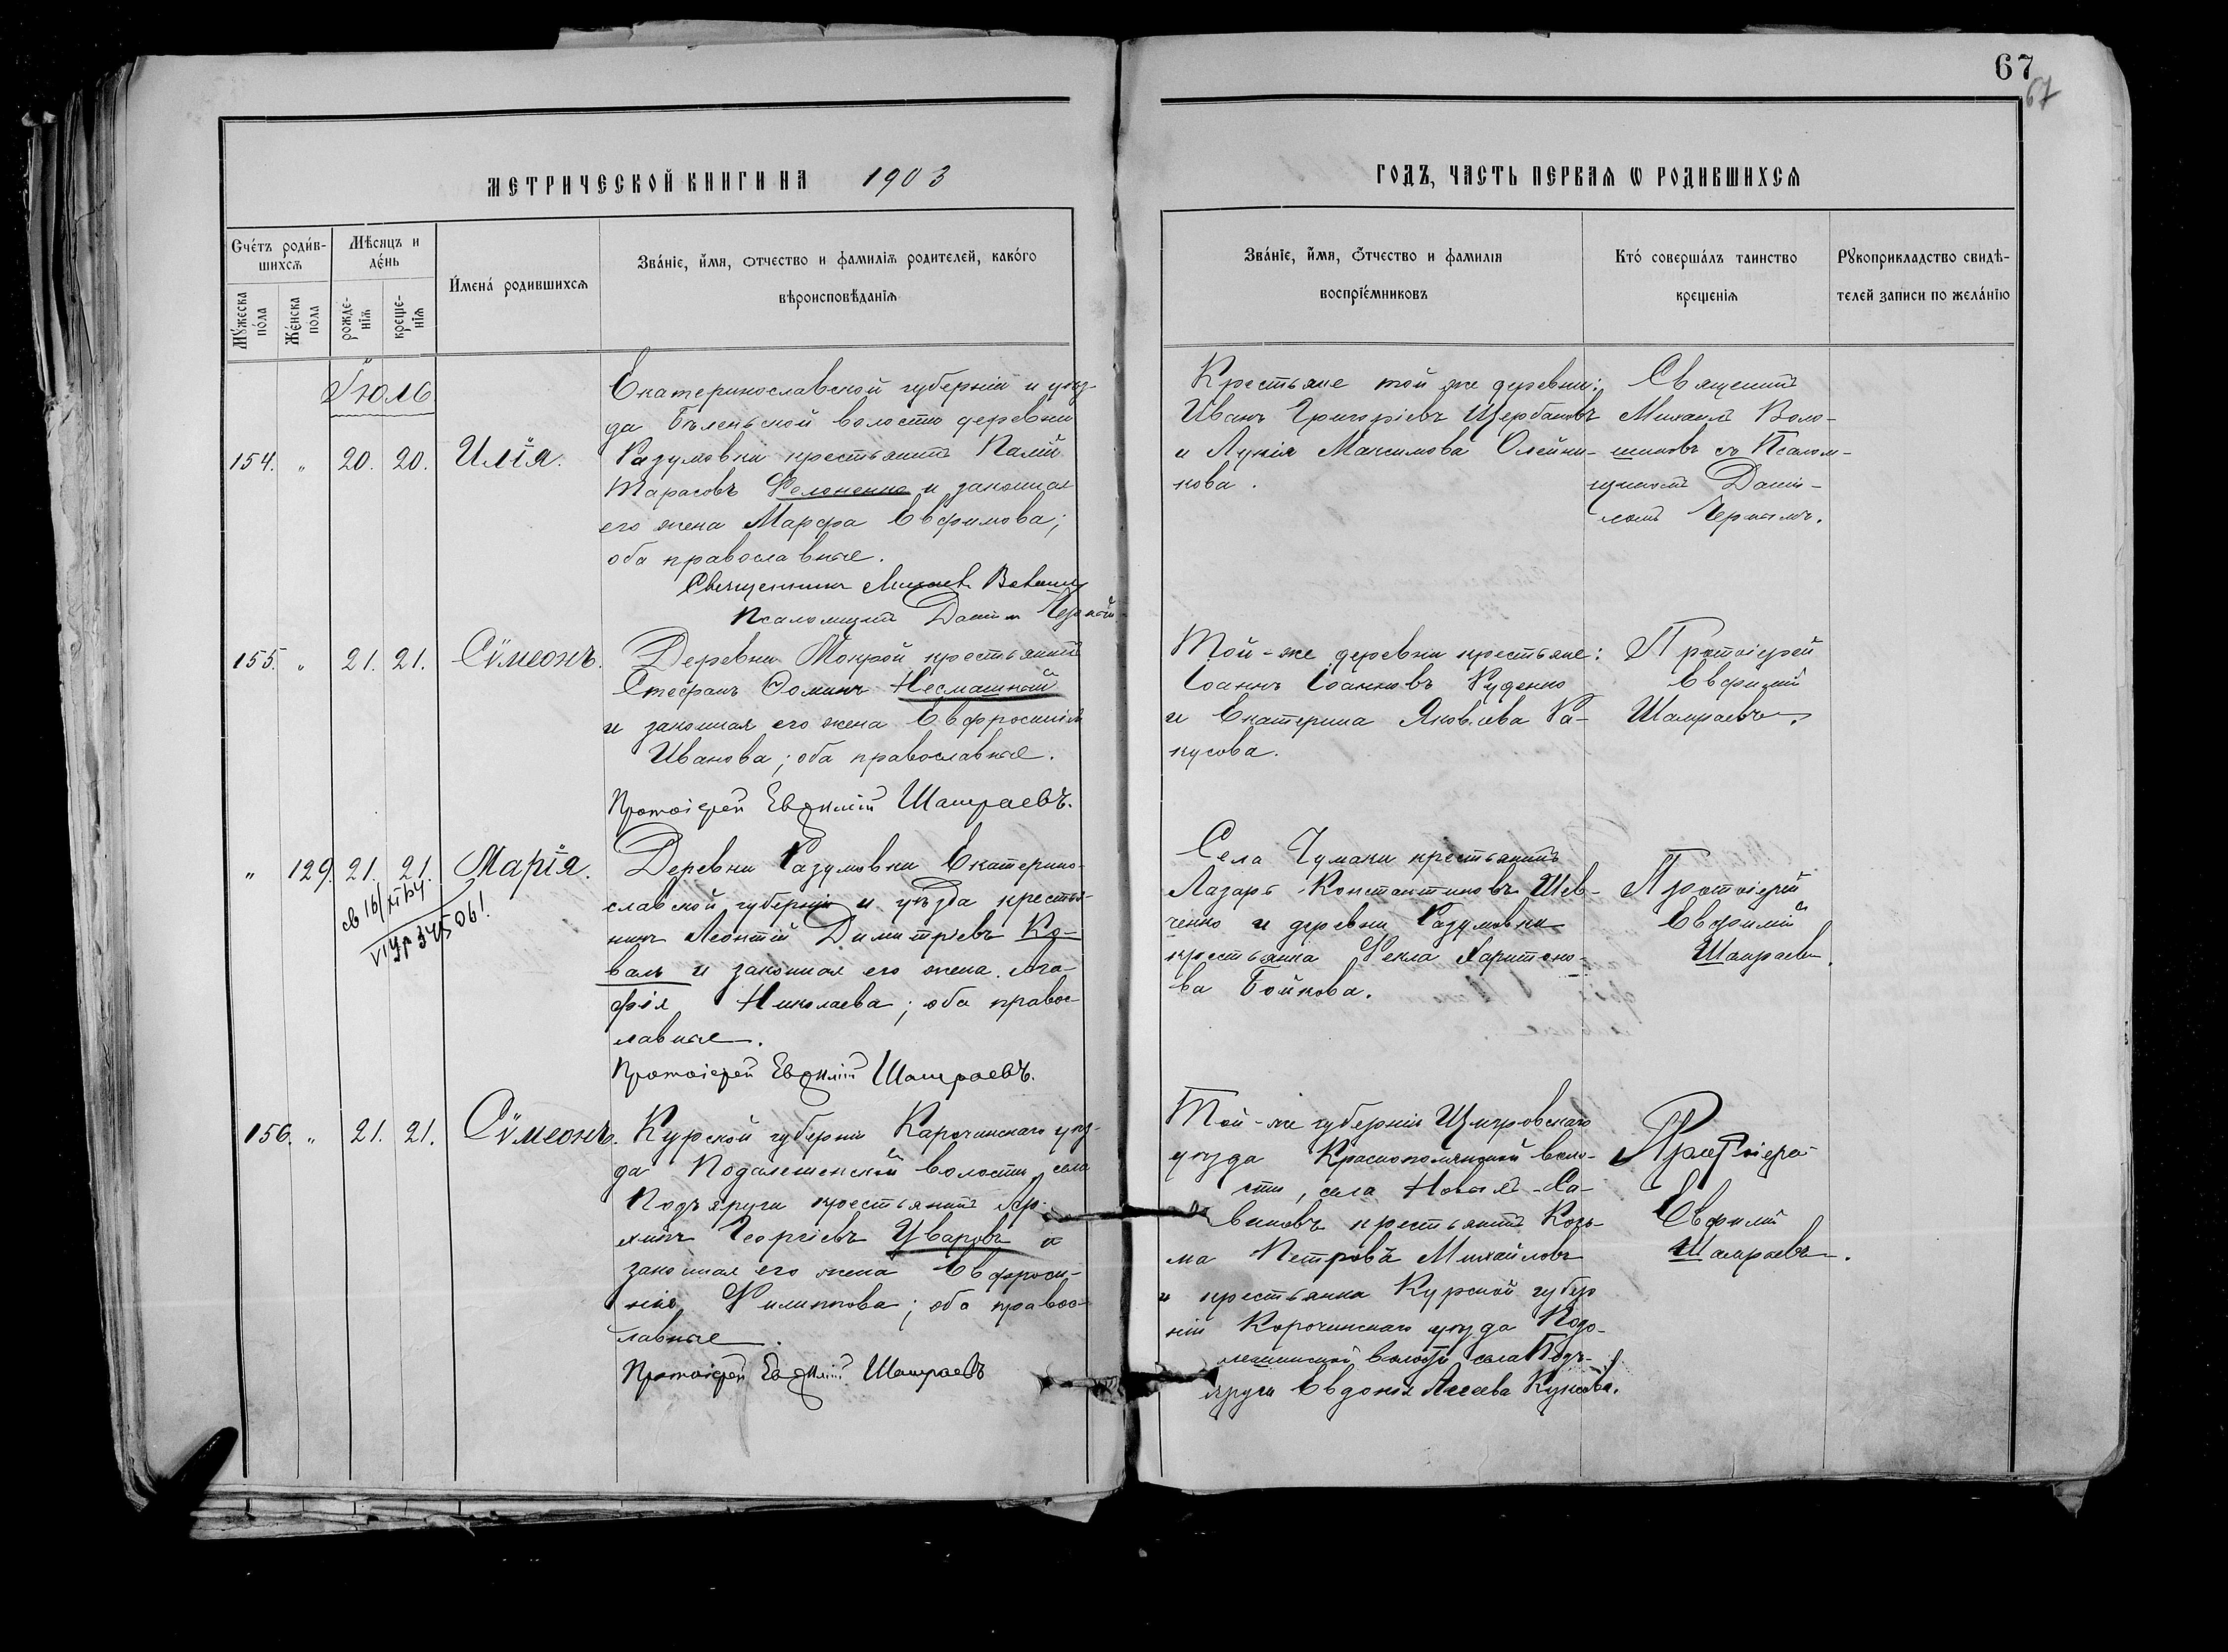 67
67
МЕТРИЧЕСКОЙ КНИГИ НА 1903
ГОДЪ, ЧАСТЬ ПЕРВАЯ Ѡ РОДИВШИХСЯ
Счетъ родив-
шихся
Мѣсяцъ и
день
Имена родившихся
Званіе, имя, отчество и фамилія родителей, какого
вѣроисповѣданія
Мужеска
пола
Женска
пола
рожде-
нія
креще-
нія
Званіе, имя, отчество и фамилія
воспріемниковъ
Кто совершалъ таинство
крещенія
Рукоприкладство свидѣ-
телей записи по желанію
Іюль
154. " 20. 20. Илія.
Екатеринославской губерніи и уѣз-
да Бѣленьской волости деревни
Разумовки крестьянинъ
Тарасовъ и законная
его жена Марѳа Евфимова;
оба православные.
Священникъ Михаилъ
Псаломщикъ
Крестьяне той же деревни:
Иванъ Григоріевъ Щербаковъ
и Лукія Максимова Олейни-
кова.
Священникъ
Михаилъ Воло-
шиновъ съ Псалом-
щикомъ Дани-
ломъ
155. " 21. 21. Сѵмеонъ.
Деревни Мокрой крестьянинъ
Стефанъ Ѳоминъ Несмашный
и законная его жена Евфросинія
Иванова; оба православные.
Протоіерей Евѳимій Шамраевъ.
Той-же деревни крестьяне:
Іоаннъ Іоанновъ Руденко
и Екатерина Яковлева Ра-
кусова.
Протоіерей
Евфимій
Шамраевъ.
" 129. 21. 21. Марія.
Деревни Разумовки Екатерино-
славской губерніи и уѣзда крестья-
нинъ Леонтій Димитріевъ Ко-
валь и законная его жена Ага-
фія Николаева; оба правос-
лавные.
Протоіерей Евѳимій Шамраевъ.
Села Чумаки крестьянинъ
Лазарь Константиновъ Шев-
ченко и деревни Разумовки
крестьянка Ѳекла Харитоно-
ва Бойкова.
Протоіерей
Евфимій
Шамраевъ.
156. " 21. 21. Сѵмеонъ.
Курской губерніи Корочинскаго уѣз-
да волости села
Подъяруги крестьянинъ
Георгіевъ Уваровъ и
законная его жена Евфроси-
нія Филиппова; оба правос-
лавные.
Протоіерей Евѳимій Шамраевъ
Той-же губерніи
уѣзда Краснополянской воло-
сти, села
крестьянинъ Козь-
ма Петровъ Михайловъ
и крестьянка Курской губер
ніи Корочинскаго уѣзда
волости села Подъ-
яруги Евдокія
Протоіерей
Евфимій
Шамраевъ.